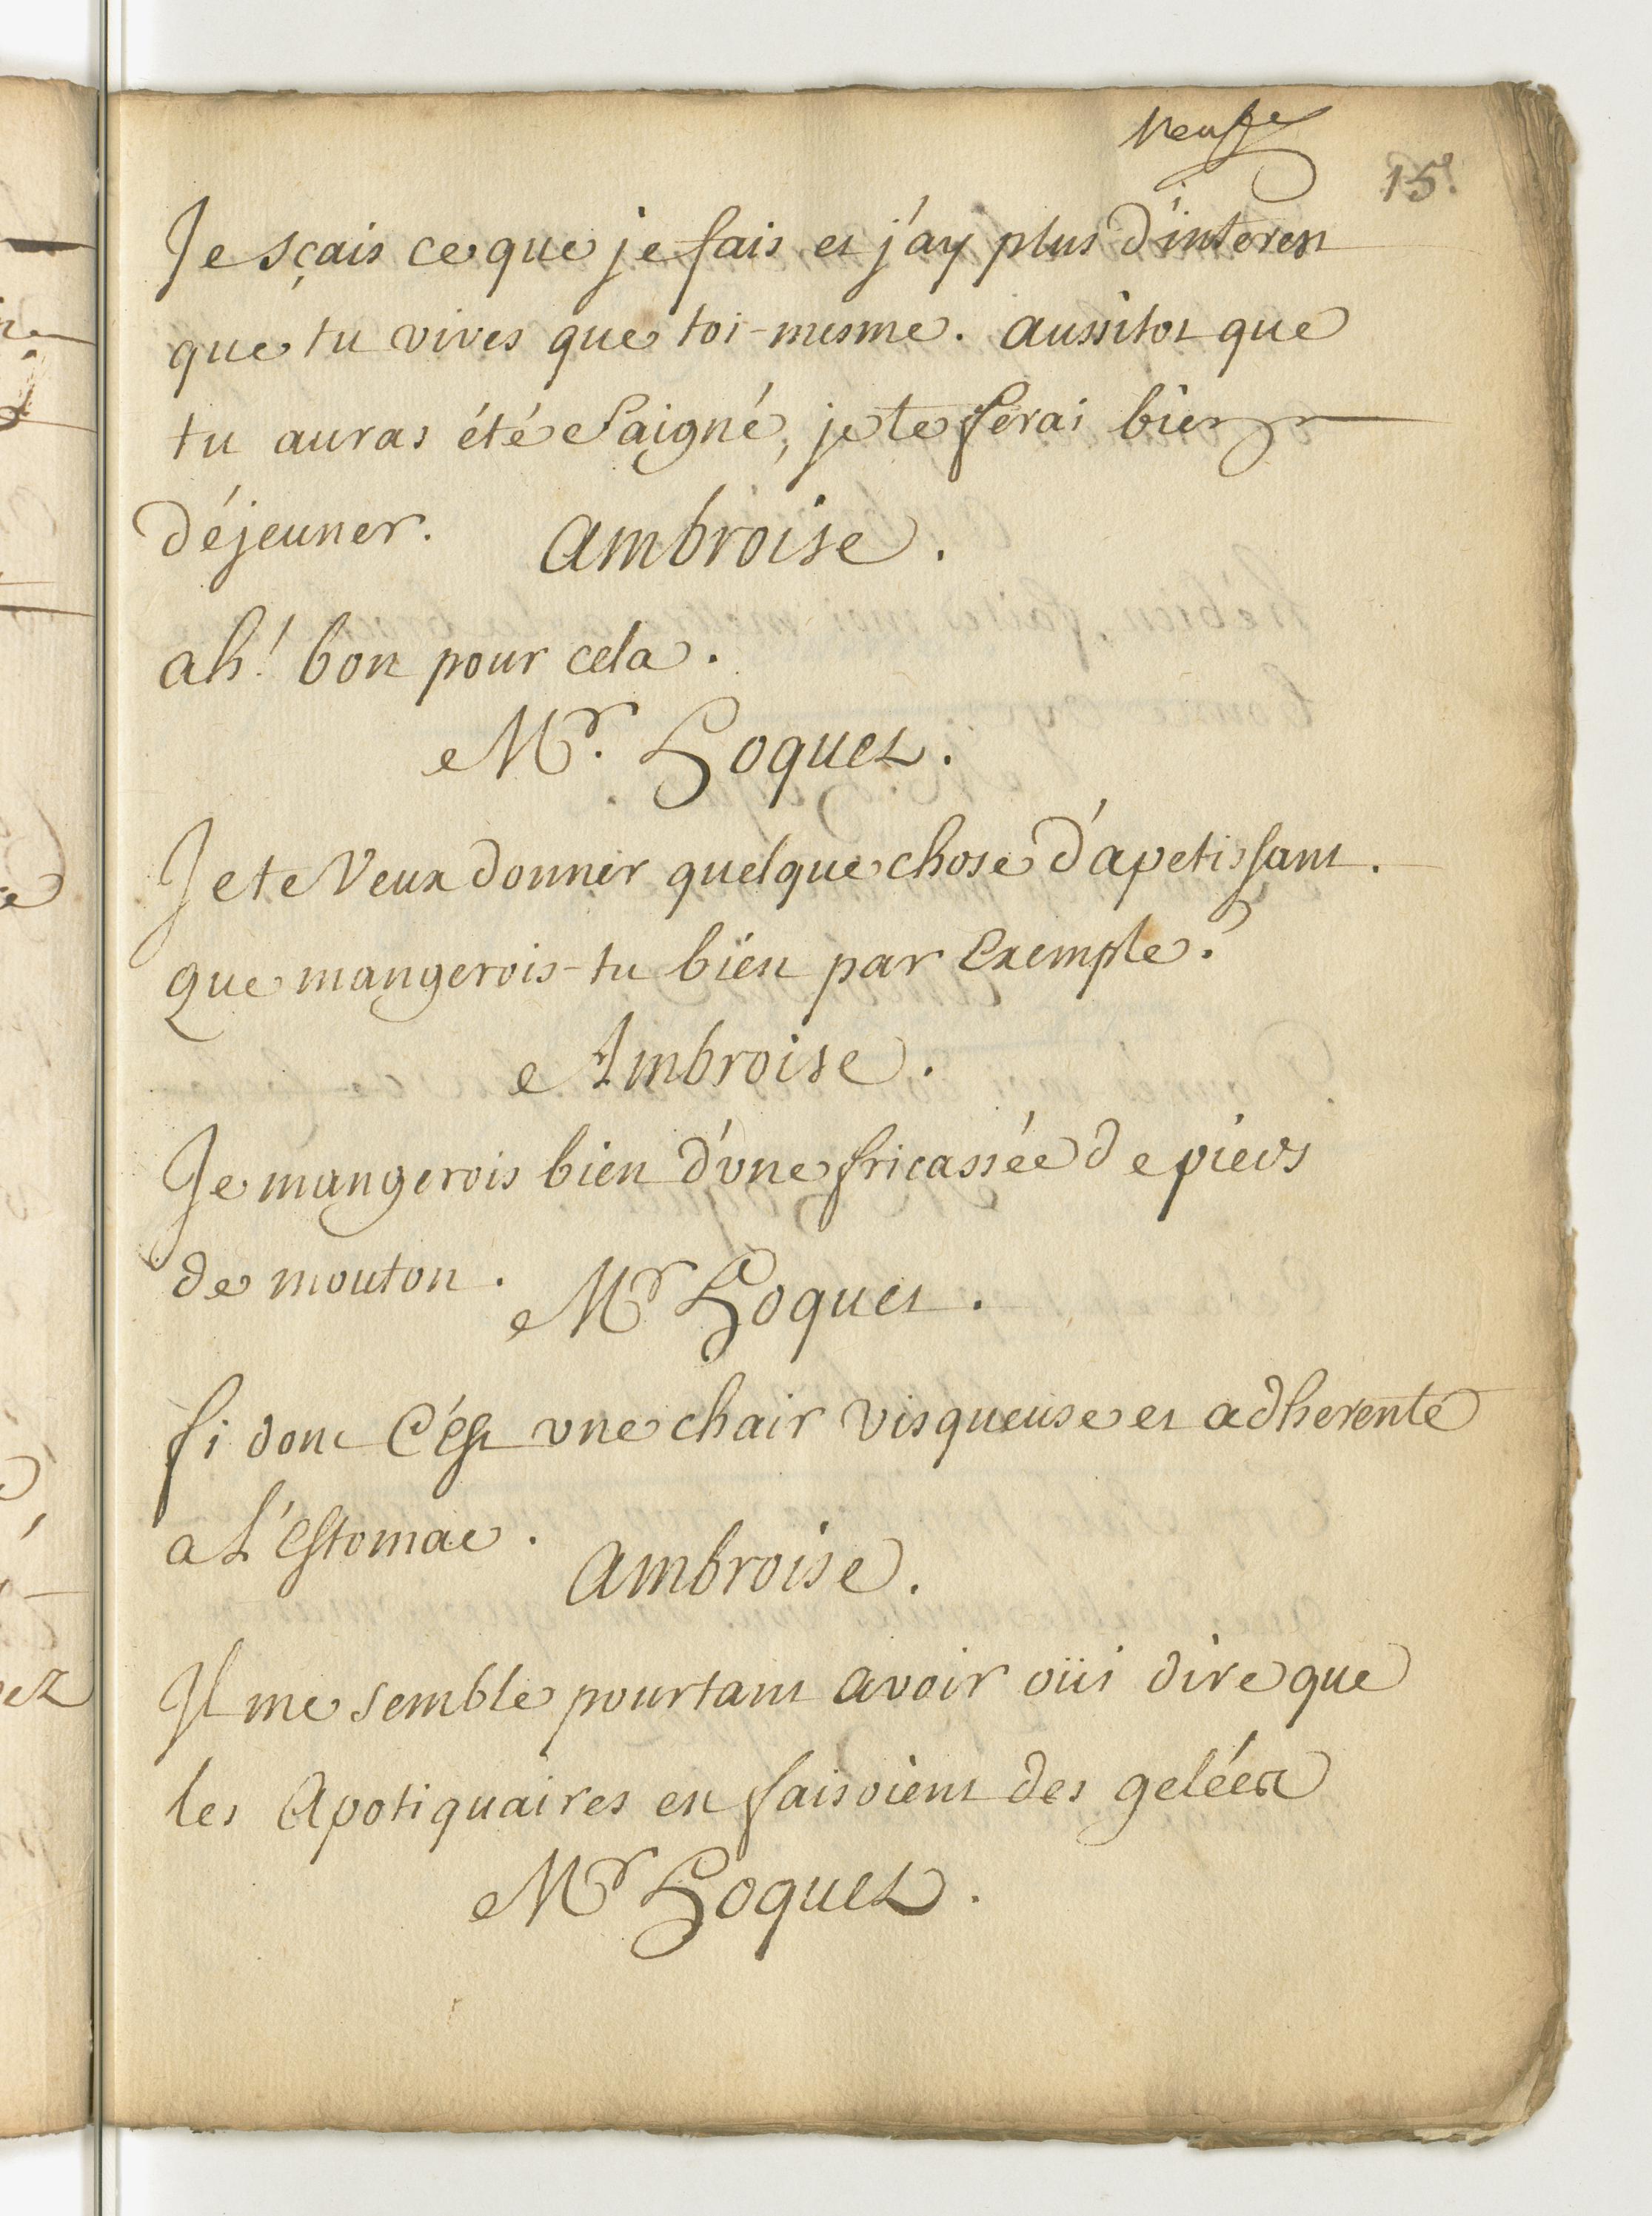 neufe
15.
Je sçais ce que je fais et j'ay plus d'interest
que tu vives que toi-mesme. aussitot que
tu auras été Saigné, je te ferai bien
déjeuner. Ambroise.
ah! bon pour cela.
Mr. Hoquet.
Je te Veux donner quelque chose d'apetissant.
que mangerois-tu bien par Exemple?
Ambroise.
Je mangerois bien d'une fricassée de pieds
de mouton. Mr Hoquet.
fi donc C'est une chair visqueuse et adherente
a L'Estomac. Ambroise.
Il me semble pourtant avoir oüi dire que
les Apotiquaires en faisoient des gelées
Mr Hoquet.